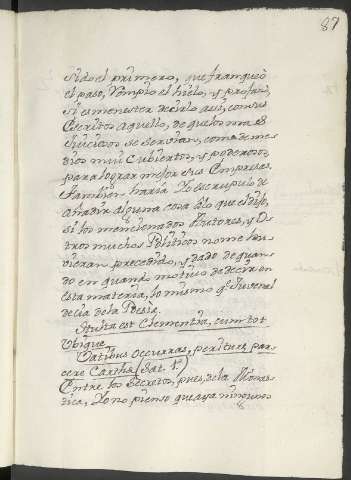 87
sido el primero, que franqueò
el paso, rompiò el hielo, y profanò,
si es menester decirlo assi, con sus
Escritos aquello, de que los mas
Juiciosos se servian, como de me=
dios mui cubiertos, y poderosos,
para lograr mejor sus Empresas.
Tambien haria Yo escrupulo de
añadir alguna cosa à lo que el dijo,
si los mencionados Autores, y O=
tros muchos Politicos no me hu=
vieran precedido, y dado de quan=
do en quando motivo de decir en
esta materia, lo mismo q.e Juvenal
decia de la Poesia.
Stulta est Clementia, cum tot
Ubique
Vatibus occurras, periturę par=
cere Carthę. (Sat. 1.ª)
Entre los Secretos, pues, de la Monas=
tica, Yo no pienso que aya ningunos